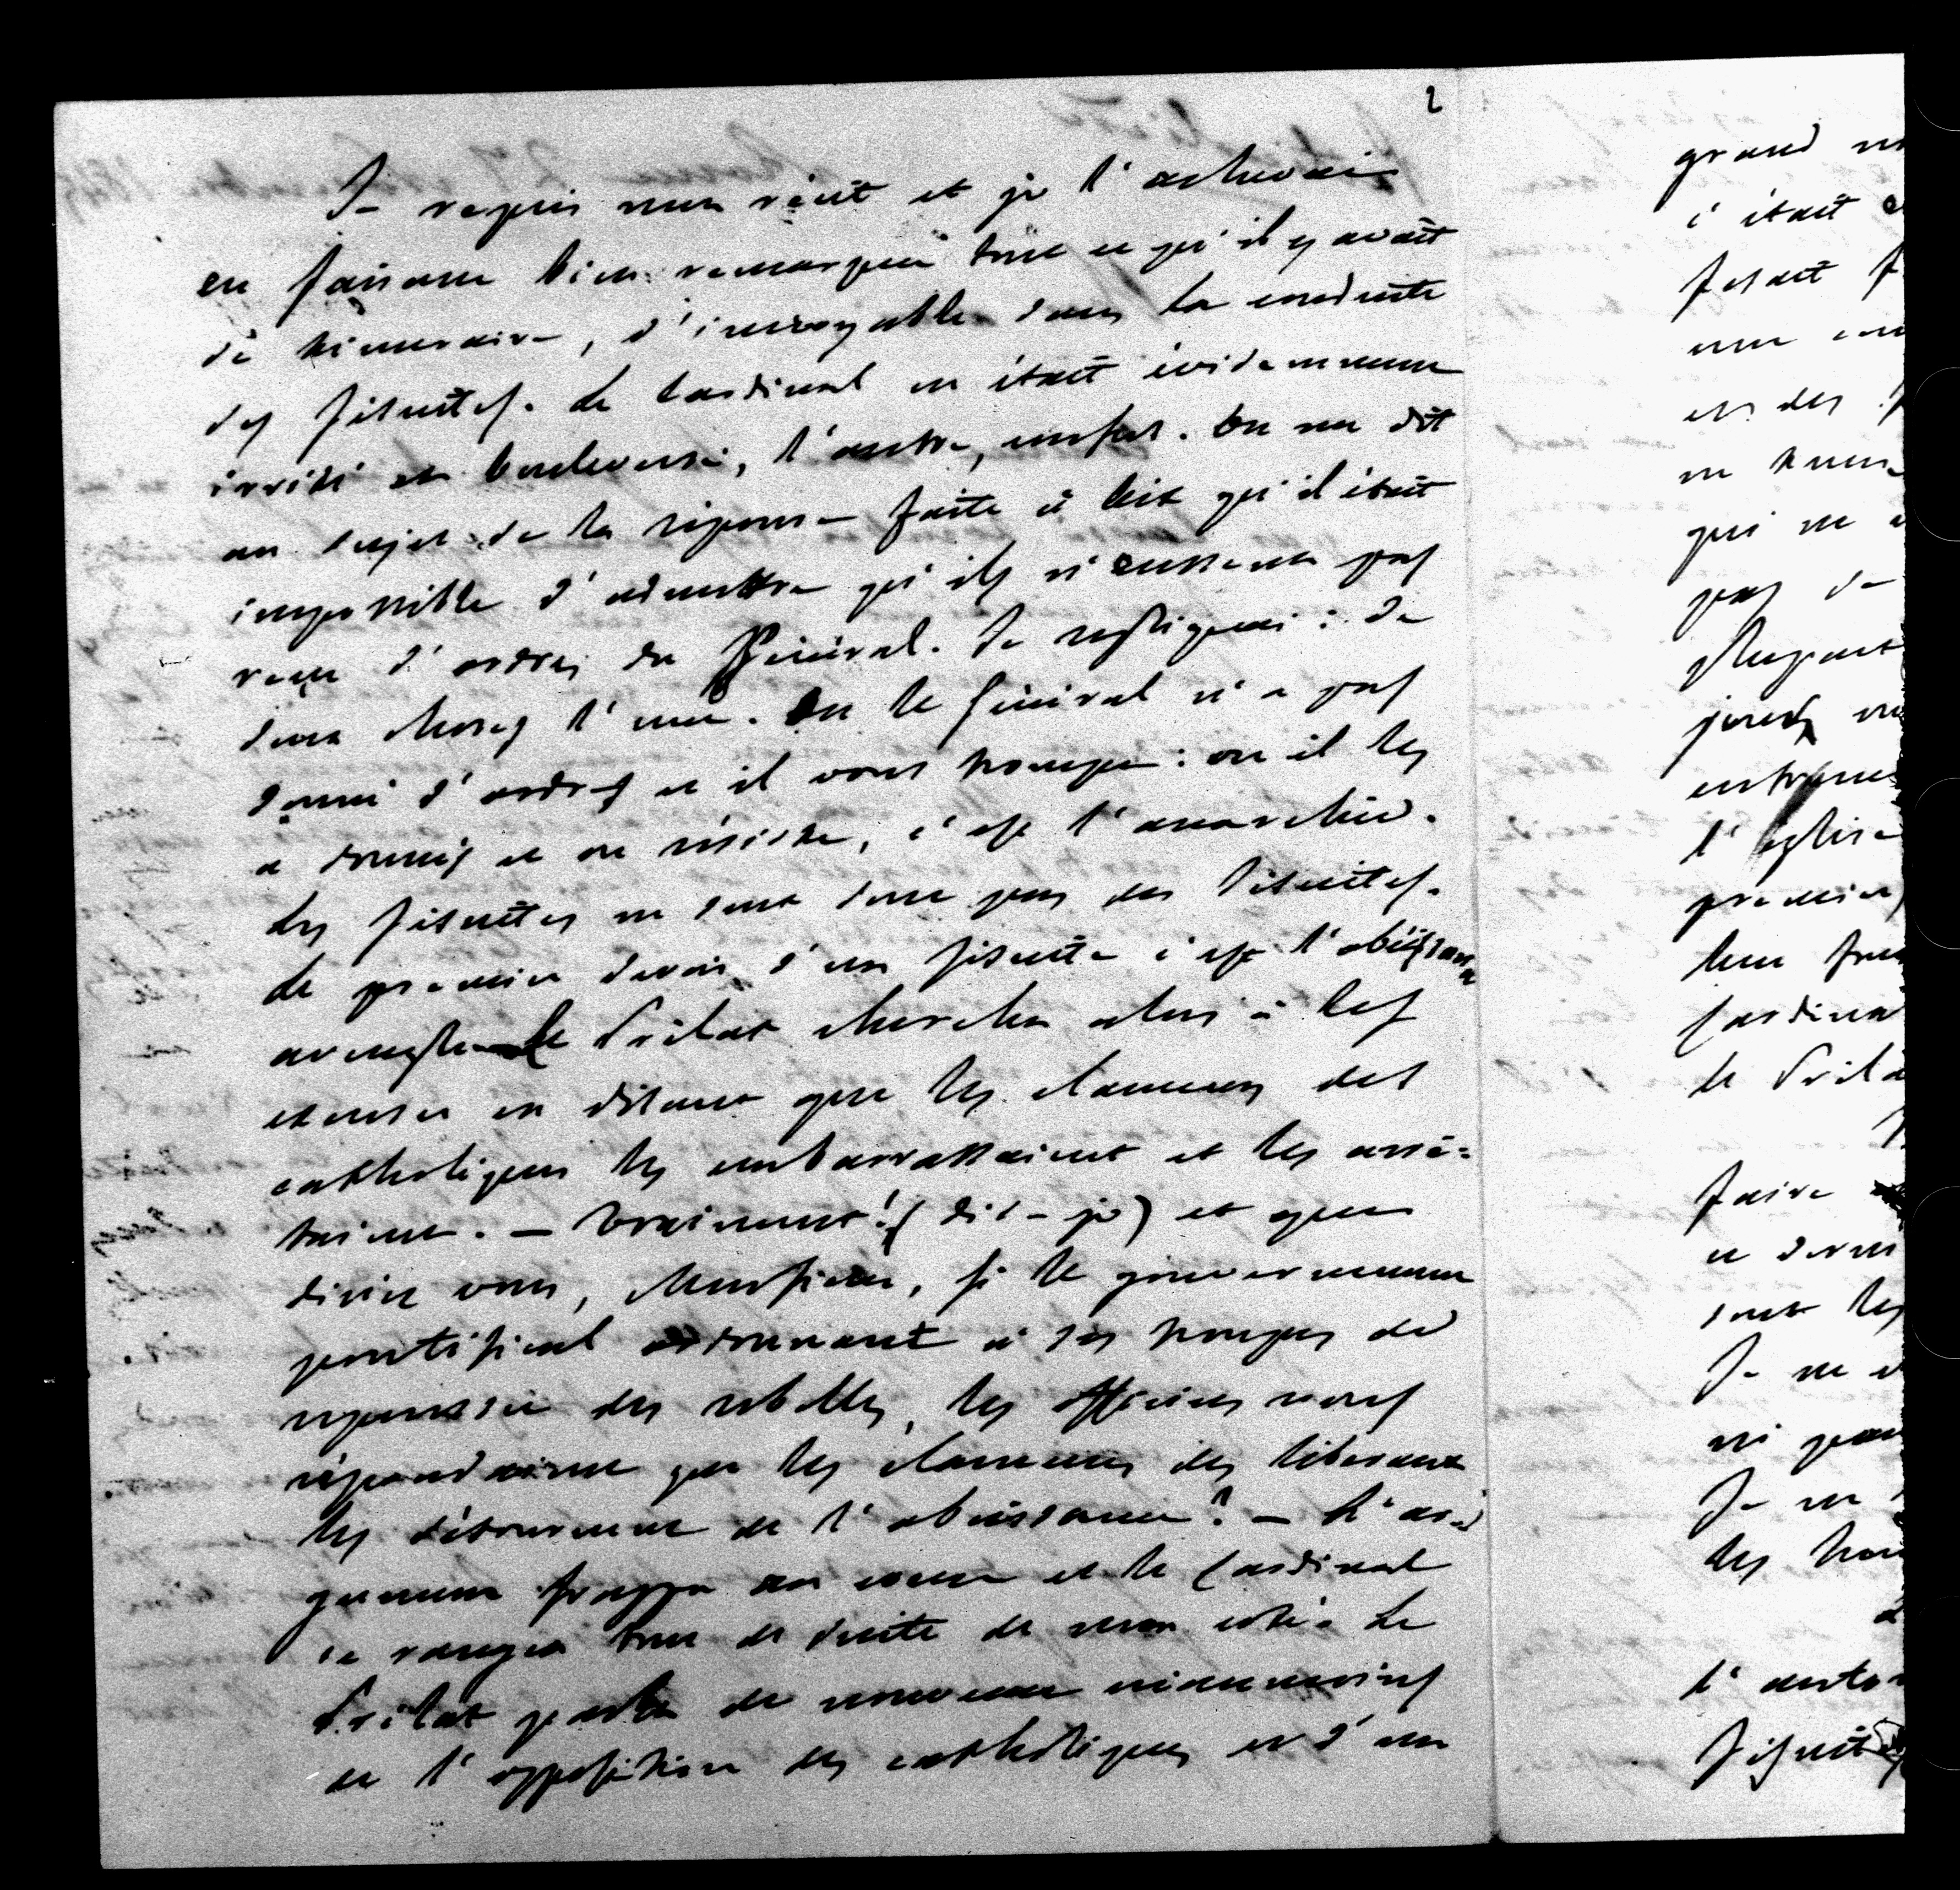 2
Je repris mon récit et je l'achevai
en faisant bien remarquer tout ce qu'il y avait
de téméraire, d'incroyable dans la conduite
des Jésuites. Le Cardinal en était évidemment
irrité et bouleversé, l'autre, confus. On me dit
au sujet de la réponse faite à qu'il était
impossible d'admettre qu'ils n'eussent pas
reçu d'ordres du Général. Je répliquai : De
deux choses l'une. Ou le Général n'a pas
donné d'ordres et il vous trompe : ou il les
a donnés et on résiste, c'est l'anarchie.
Les Jésuites ne sont donc pas des Jésuites.
Le premier devoir d'un Jésuite c'est l'obéissance
aveugle. Le Prélat chercha alors à les
excuser en disant que les clameurs des
catholiques les embarrassaient et les arrê=
taient. — Vraiment! (dis-je) et que
diriez vous, Monsieur, si le gouvernement
pontifical ordonnant à ses troupes de
repousser des rebelles, les officiers vous
répondaient que les clameurs des libéraux
les détournent de l'obéissance? — L'ar=
gument frappa au coeur et le Cardinal
se rangea tout de suite de mon côté. Le
Prélat parla de nouveau néanmoins
de l'opposition des catholiques et d'un
grand
c'était
fesait
une
et des
ne
qui ne
pas de
jours
l'église
premier
leur
Cardinal
le Prélat
faire
sont les
Je ne
ni
Je ne
les
l'
Jésuites